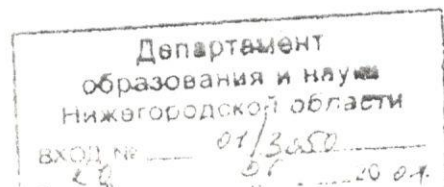 Департамент
образования и науки
Нижегородской области
ВХОД № 01/3050
28 05 20 01